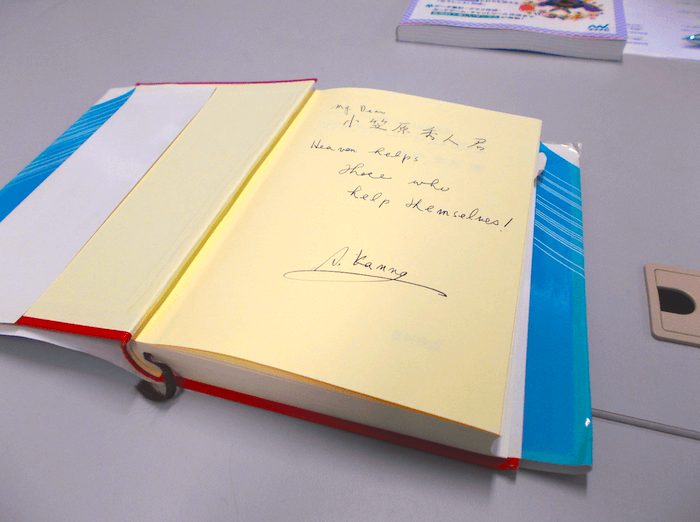 My Dear
小笠原秀人君
Heaven helps
those who
help themselves!